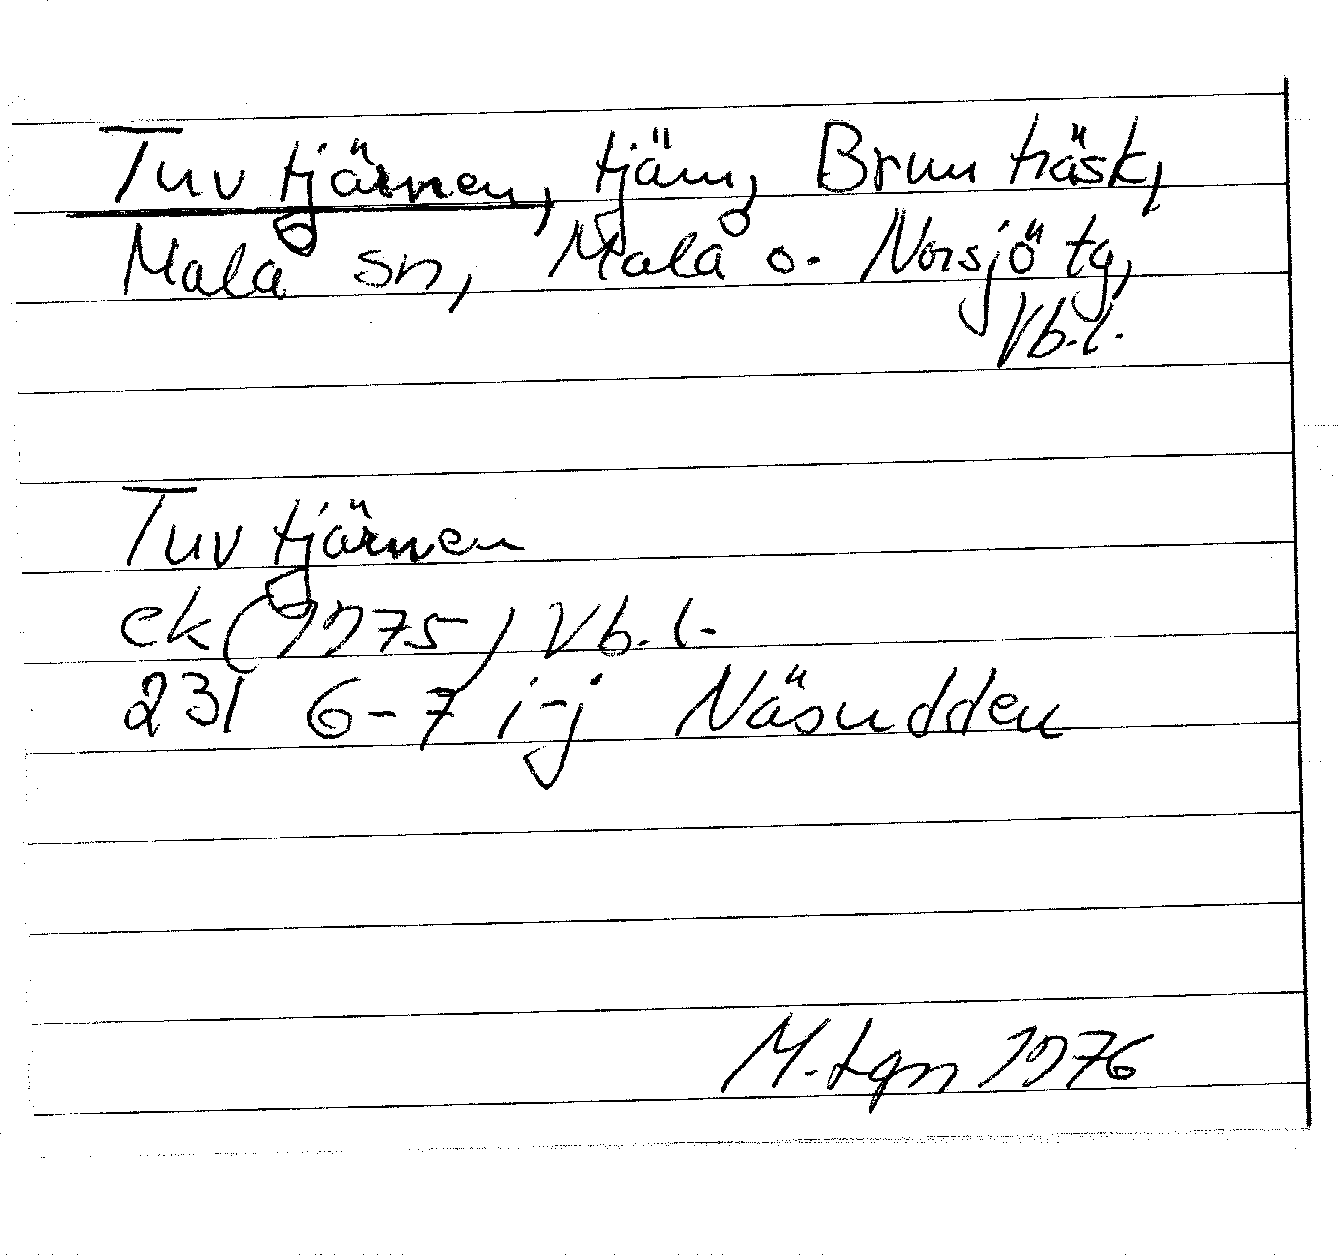 Tuvtjärnen, tjärn, Brunträsk,
Malå sn, Malå o. Norsjö tg,
Vb.l.
Tuvtjärnen
ek (1975) Vb.l.
231 6-7 i-j Näsudden
M.tgn 1976